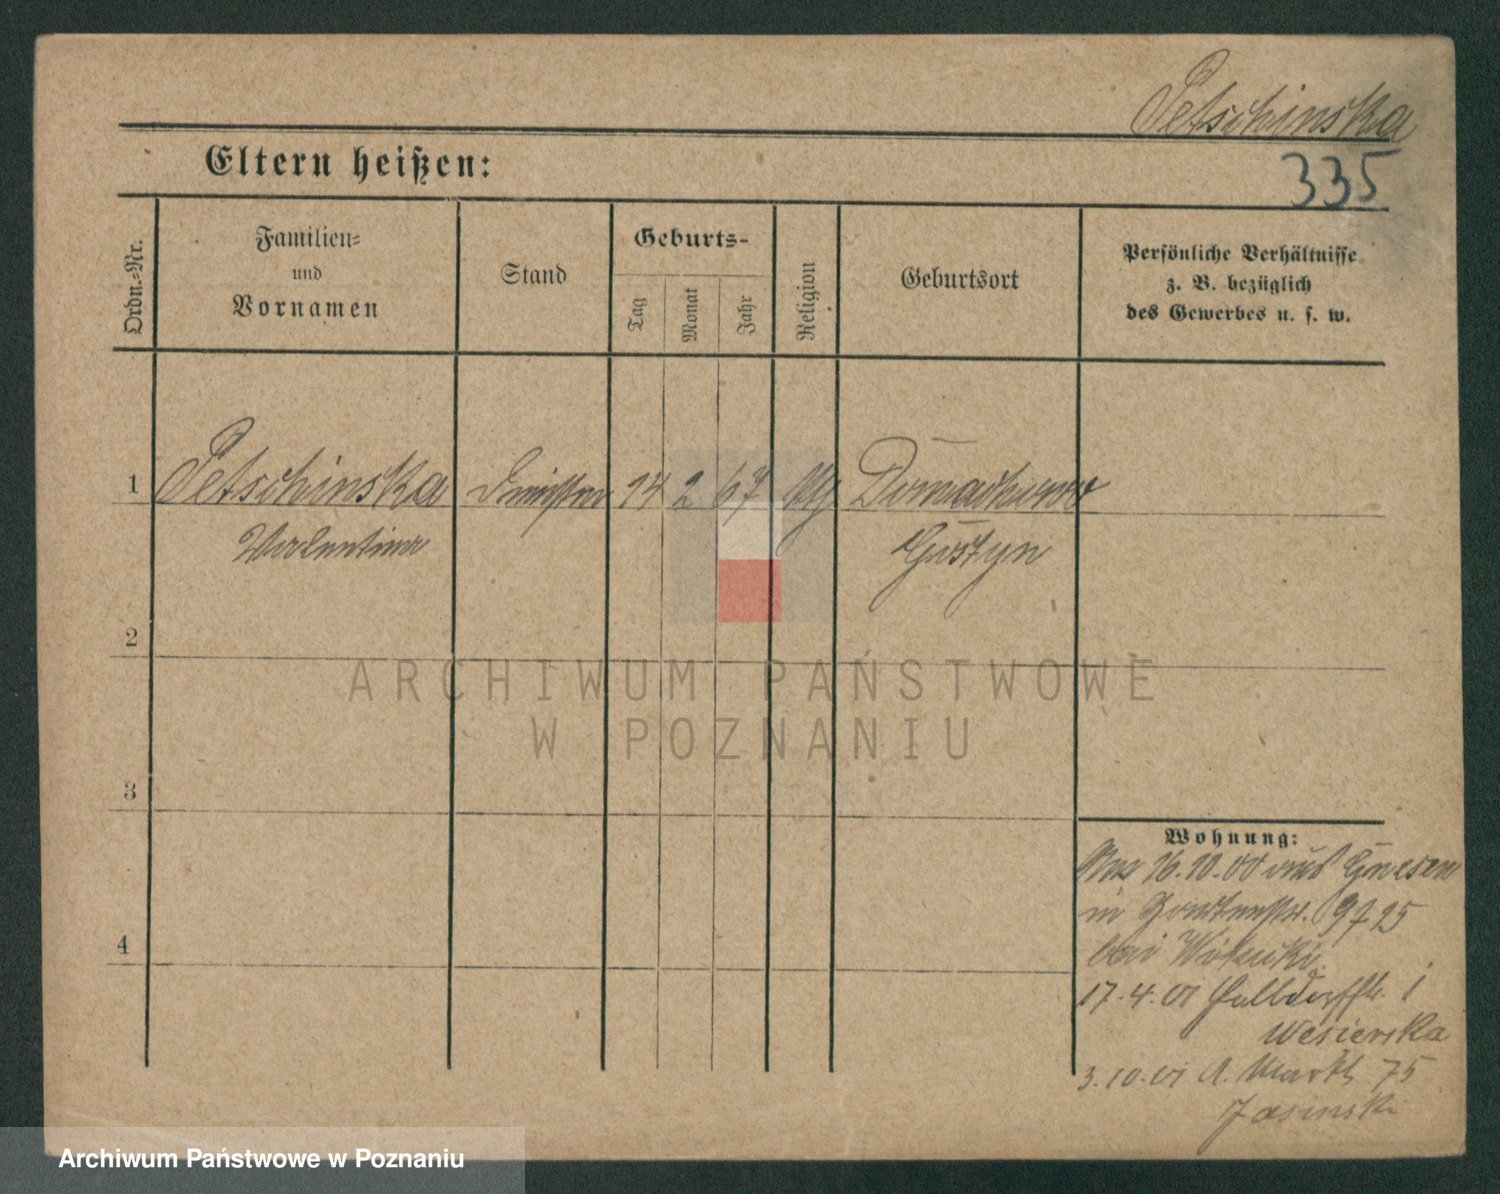 Petschinska
335
Eltern heißen:
Ordn.-Nr.
Familien-
und
Vornamen
Stand
Geburts-
Tag
Monat
Jahr
Religion
Geburtsort
Persönliche Verhältnisse
z. B. bezüglich
des Gewerbes u. s. w.
1 Petschinska 14 2 67
Valentina Gostyn
2
3
4
Wohnung:
16.10.00 aus Gnesen
in
bei
17.4.01 1
Wesierska
3.10.01 A. Markt 75
Jasinski
ARCHIWUM PAŃSTWOWE
W POZNANIU
Archiwum Państwowe w Poznaniu